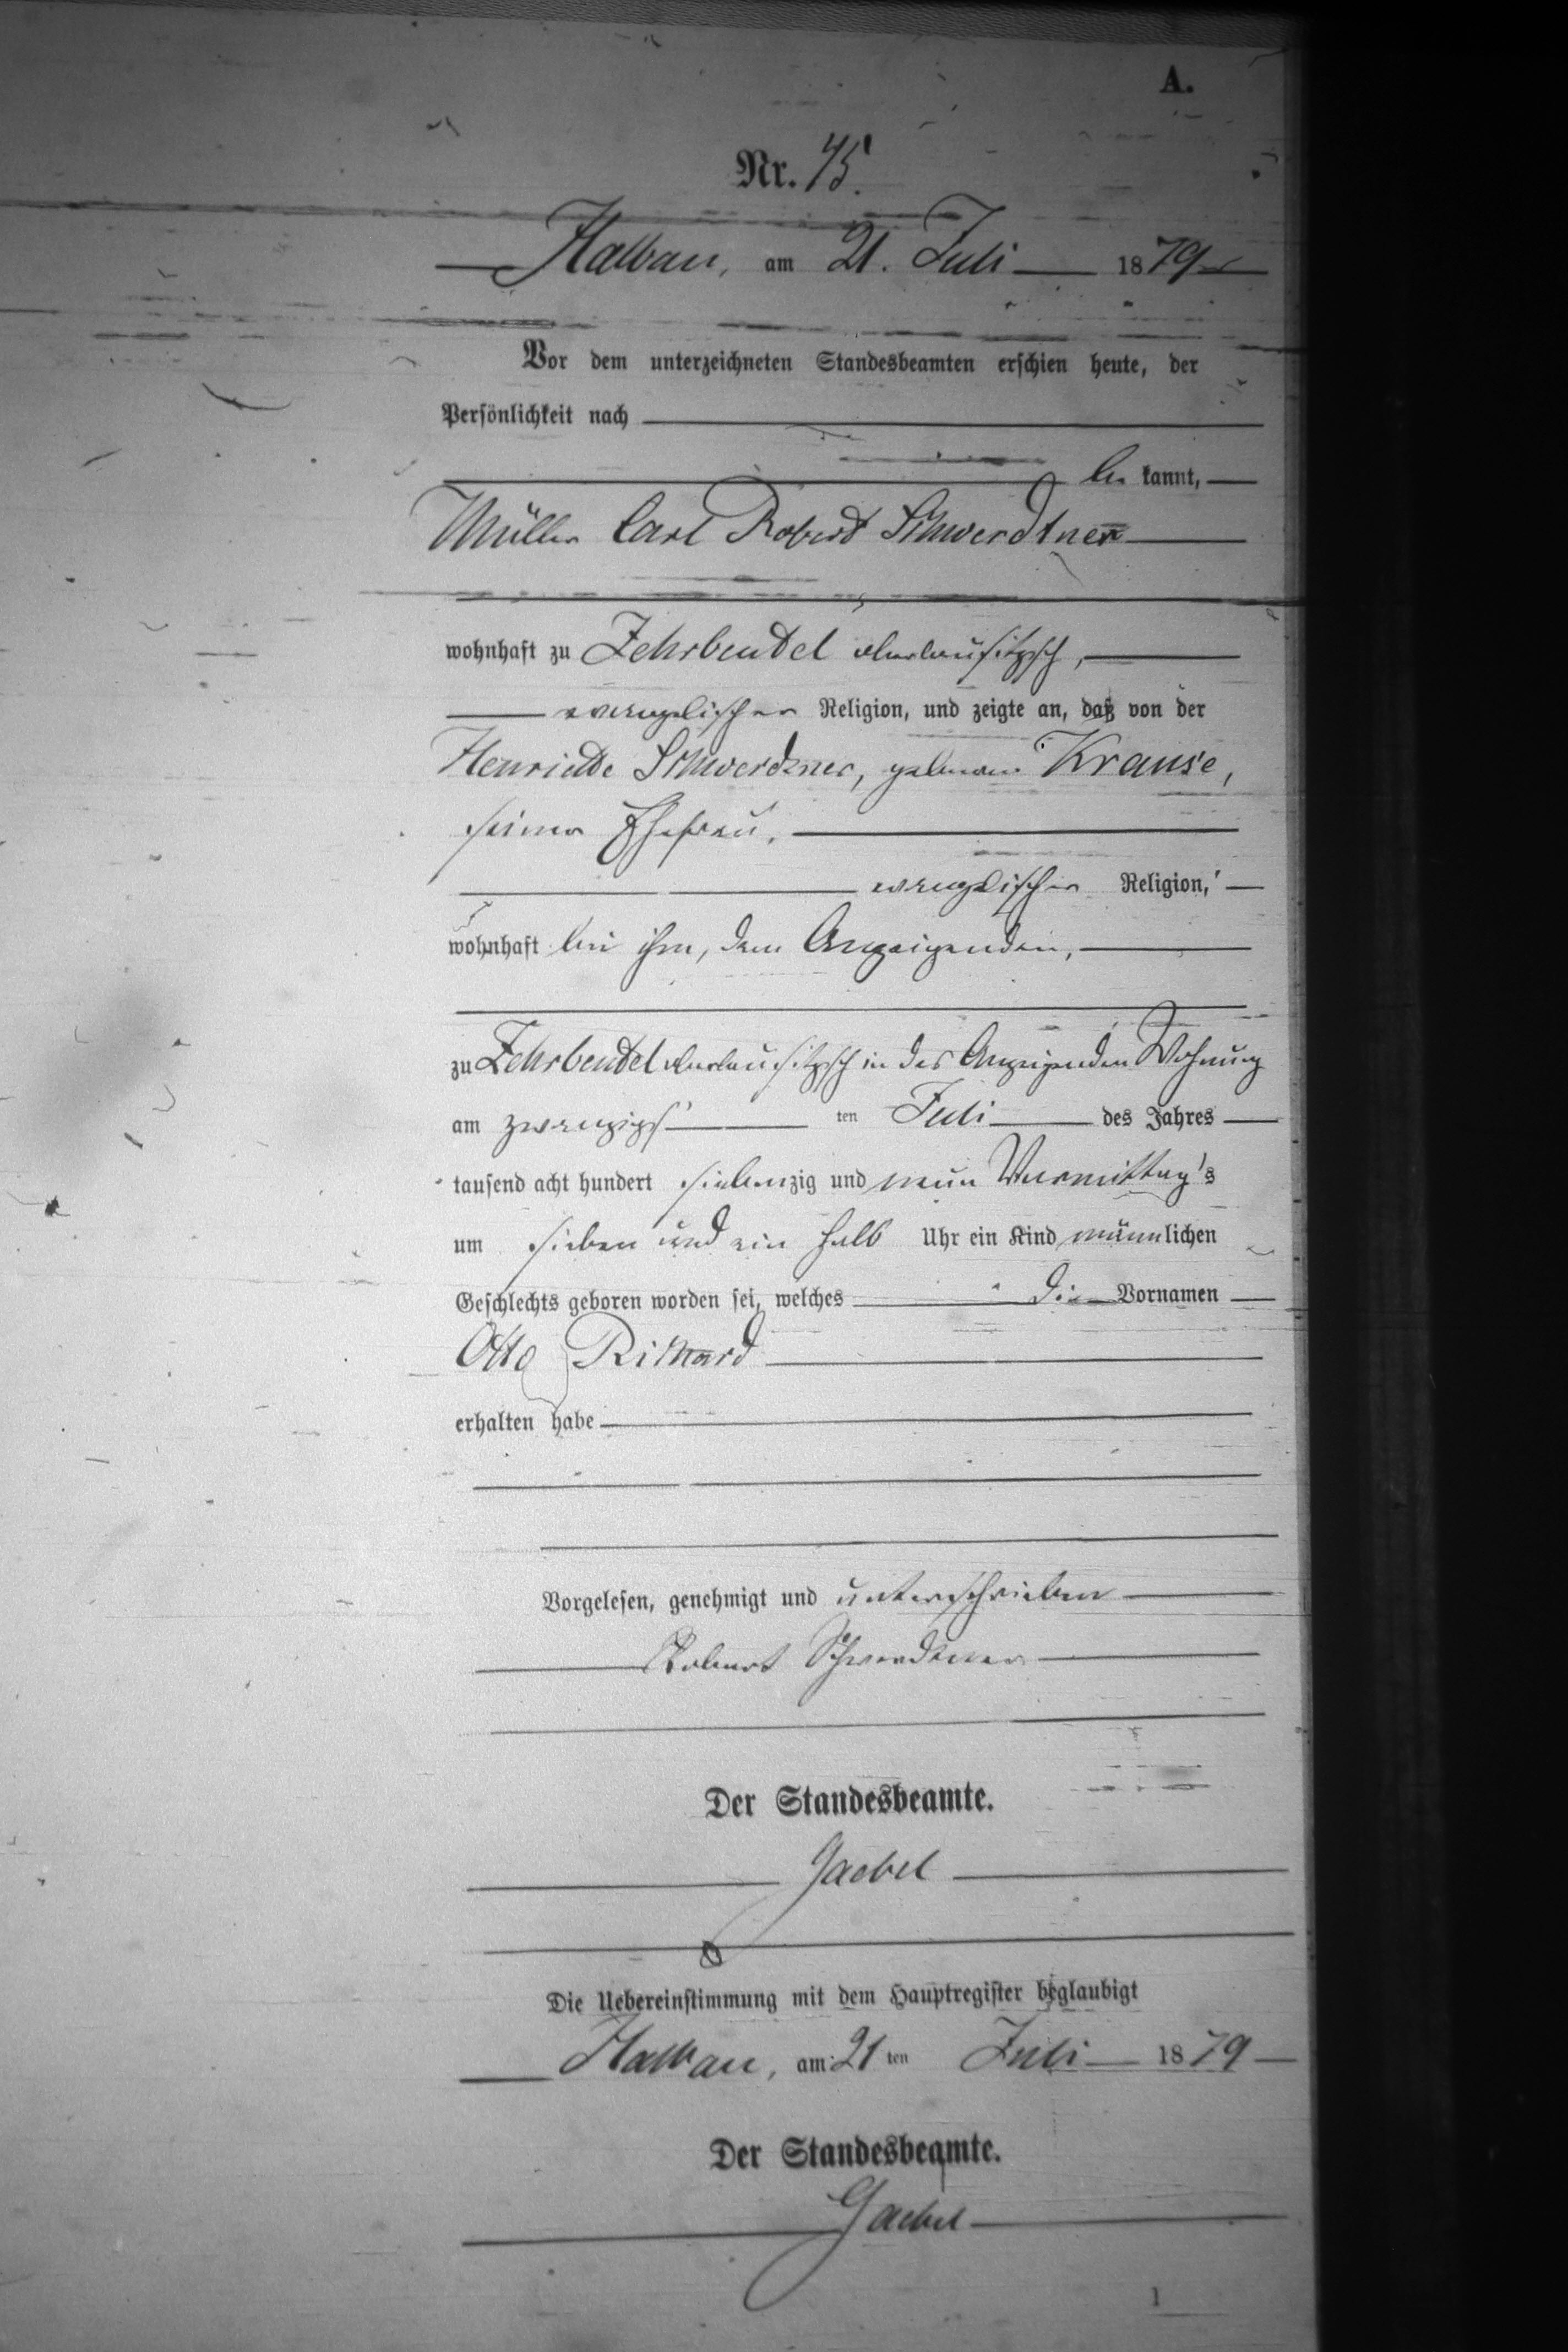 A.
Nr. 75.
Halbau, am 21. Juli 1879
Vor dem unterzeichneten Standesbeamten erschien heute, der
Persönlichkeit nach
be kannt,
Müller Carl Robert Schwerdtner
wohnhaft zu Zehrbeutel oberlausitzsch,
evangelischer Religion, und zeigte an, daß von der
Henriette Schwerdtner, geborene Krause,
seiner Ehefrau,
evangelischer Religion,
wohnhaft bei ihm, dem Anzeigenden,
zu Zehrbeutel oberlausitzsch in des Anzeigenden Wohnung
am zwanzigs ten Juli des Jahres
tausend acht hundert siebenzig und neun Vormittag's
um sieben und ein halb Uhr ein Kind männlichen
Geschlechts geboren worden sei, welches die Vornamen
Otto Richard
erhalten habe
Vorgelesen, genehmigt und unterschrieben
Robert Schwerdtner
Der Standesbeamte.
Gaebel
Die Uebereinstimmung mit dem Hauptregister beglaubigt
Halbau, am 21 ten Juli 1879
Der Standesbeamte.
Gaebel
1